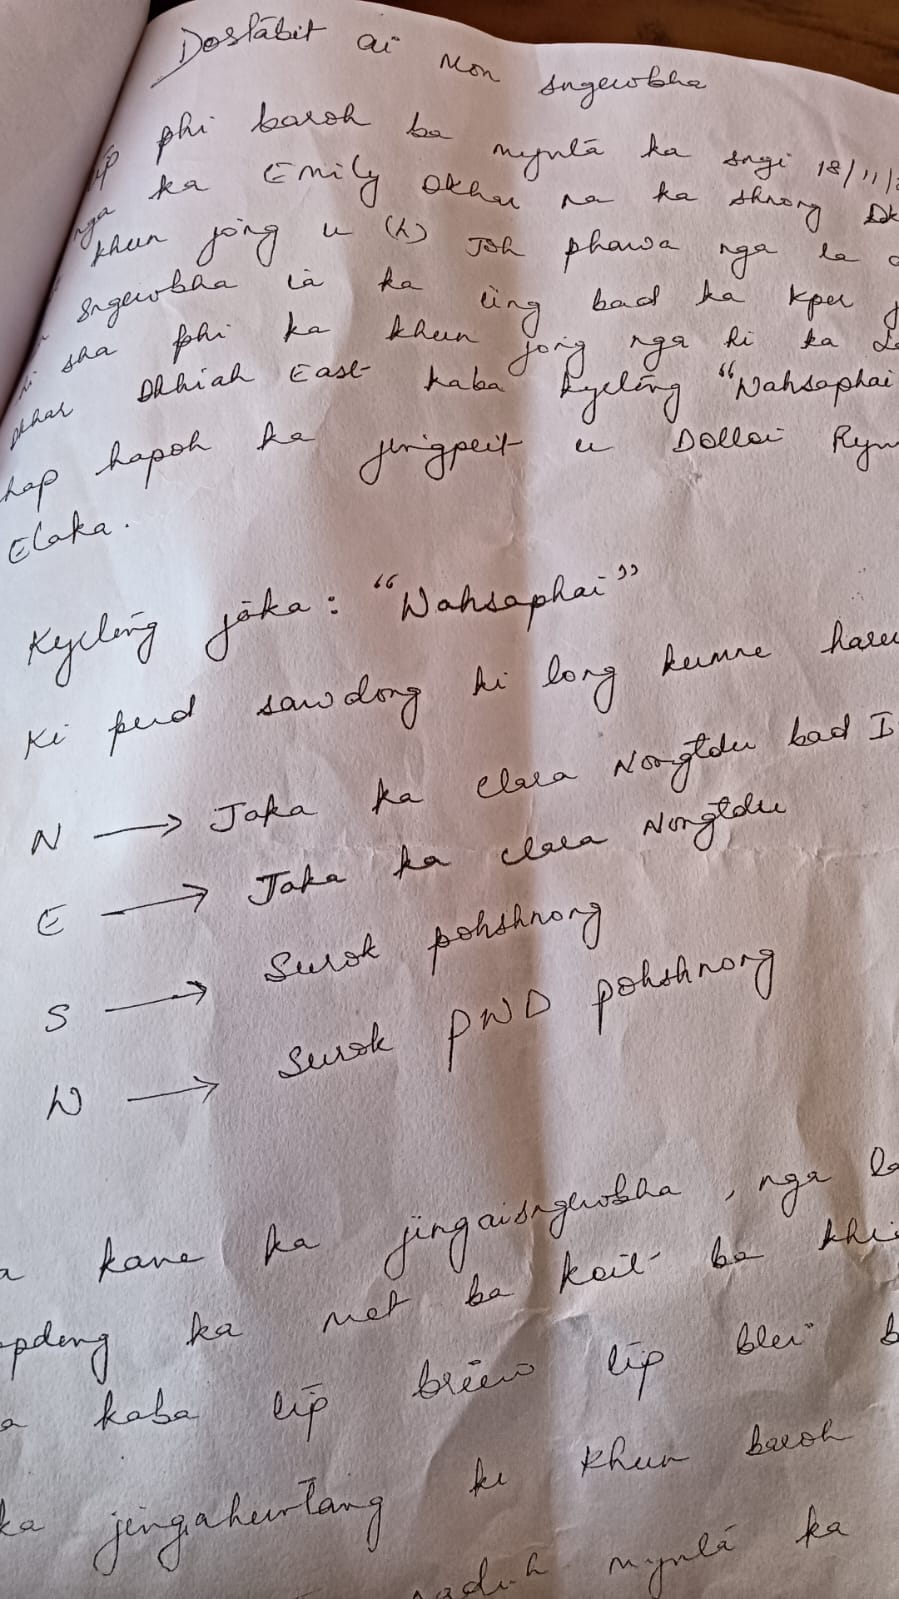 Dostabit ai mon sngewbha
ip phi baroh ba mynta ka sngi 18/11/
nga ka Emily Dkhar na ka shnong
khun jong u (L) Joh pharwa nga la
sngewbha ia ka iing bad ka kper
sha phi ka khun jong nga ki ka
Dkhar Dkhiah East kaba kyrteng "Wahsaphai
hap hapoh ka jingpeit u Dolloi Rym
Elaka.
Kyrteng jaka: "Wahsaphai"
Ki pud sawdong ki long kumne harum
N → Jaka ka Clara Nongtdu bad
E → Jaka ka Clara Nongtdu
S → Surok pohshnong
W → Surok PWD pohshnong
kane ka jingaisngewbha, nga la
pdeng ka met ba koit ba khi
kaba iip briew iip blei
ka ki khun baroh
naduh mynta ka